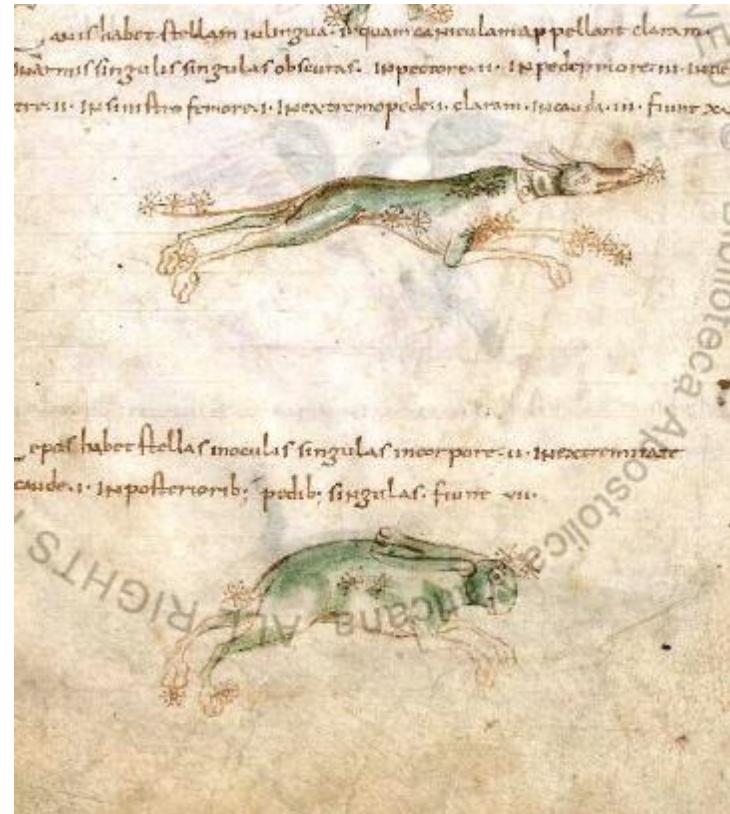 anis habet stellam in lingua · i · quam caniculam appellant claram ·
In armis singulis singulas obscuras · In pectore · ii · In pede priore · iii · In
tre · ii · In sinistro femore · i · In extremo pede · i · claram · In cauda · iii · fiunt
epas habet stellas in oculis singulas in corpore · ii · In extremitate
caude · i · In posteriorib; pedib; singulas · fiunt vii ·
Biblioteca Apostolica Vaticana ALL RIGHTS